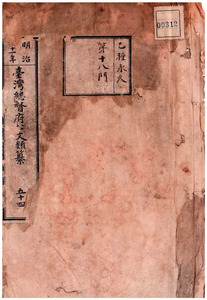 00312
乙種永久
第十八門
明治
十一年
臺灣總督府公文類纂
五十四